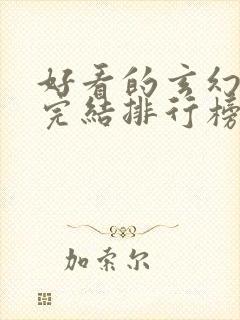 好看的玄幻
完結排行榜
加索尔